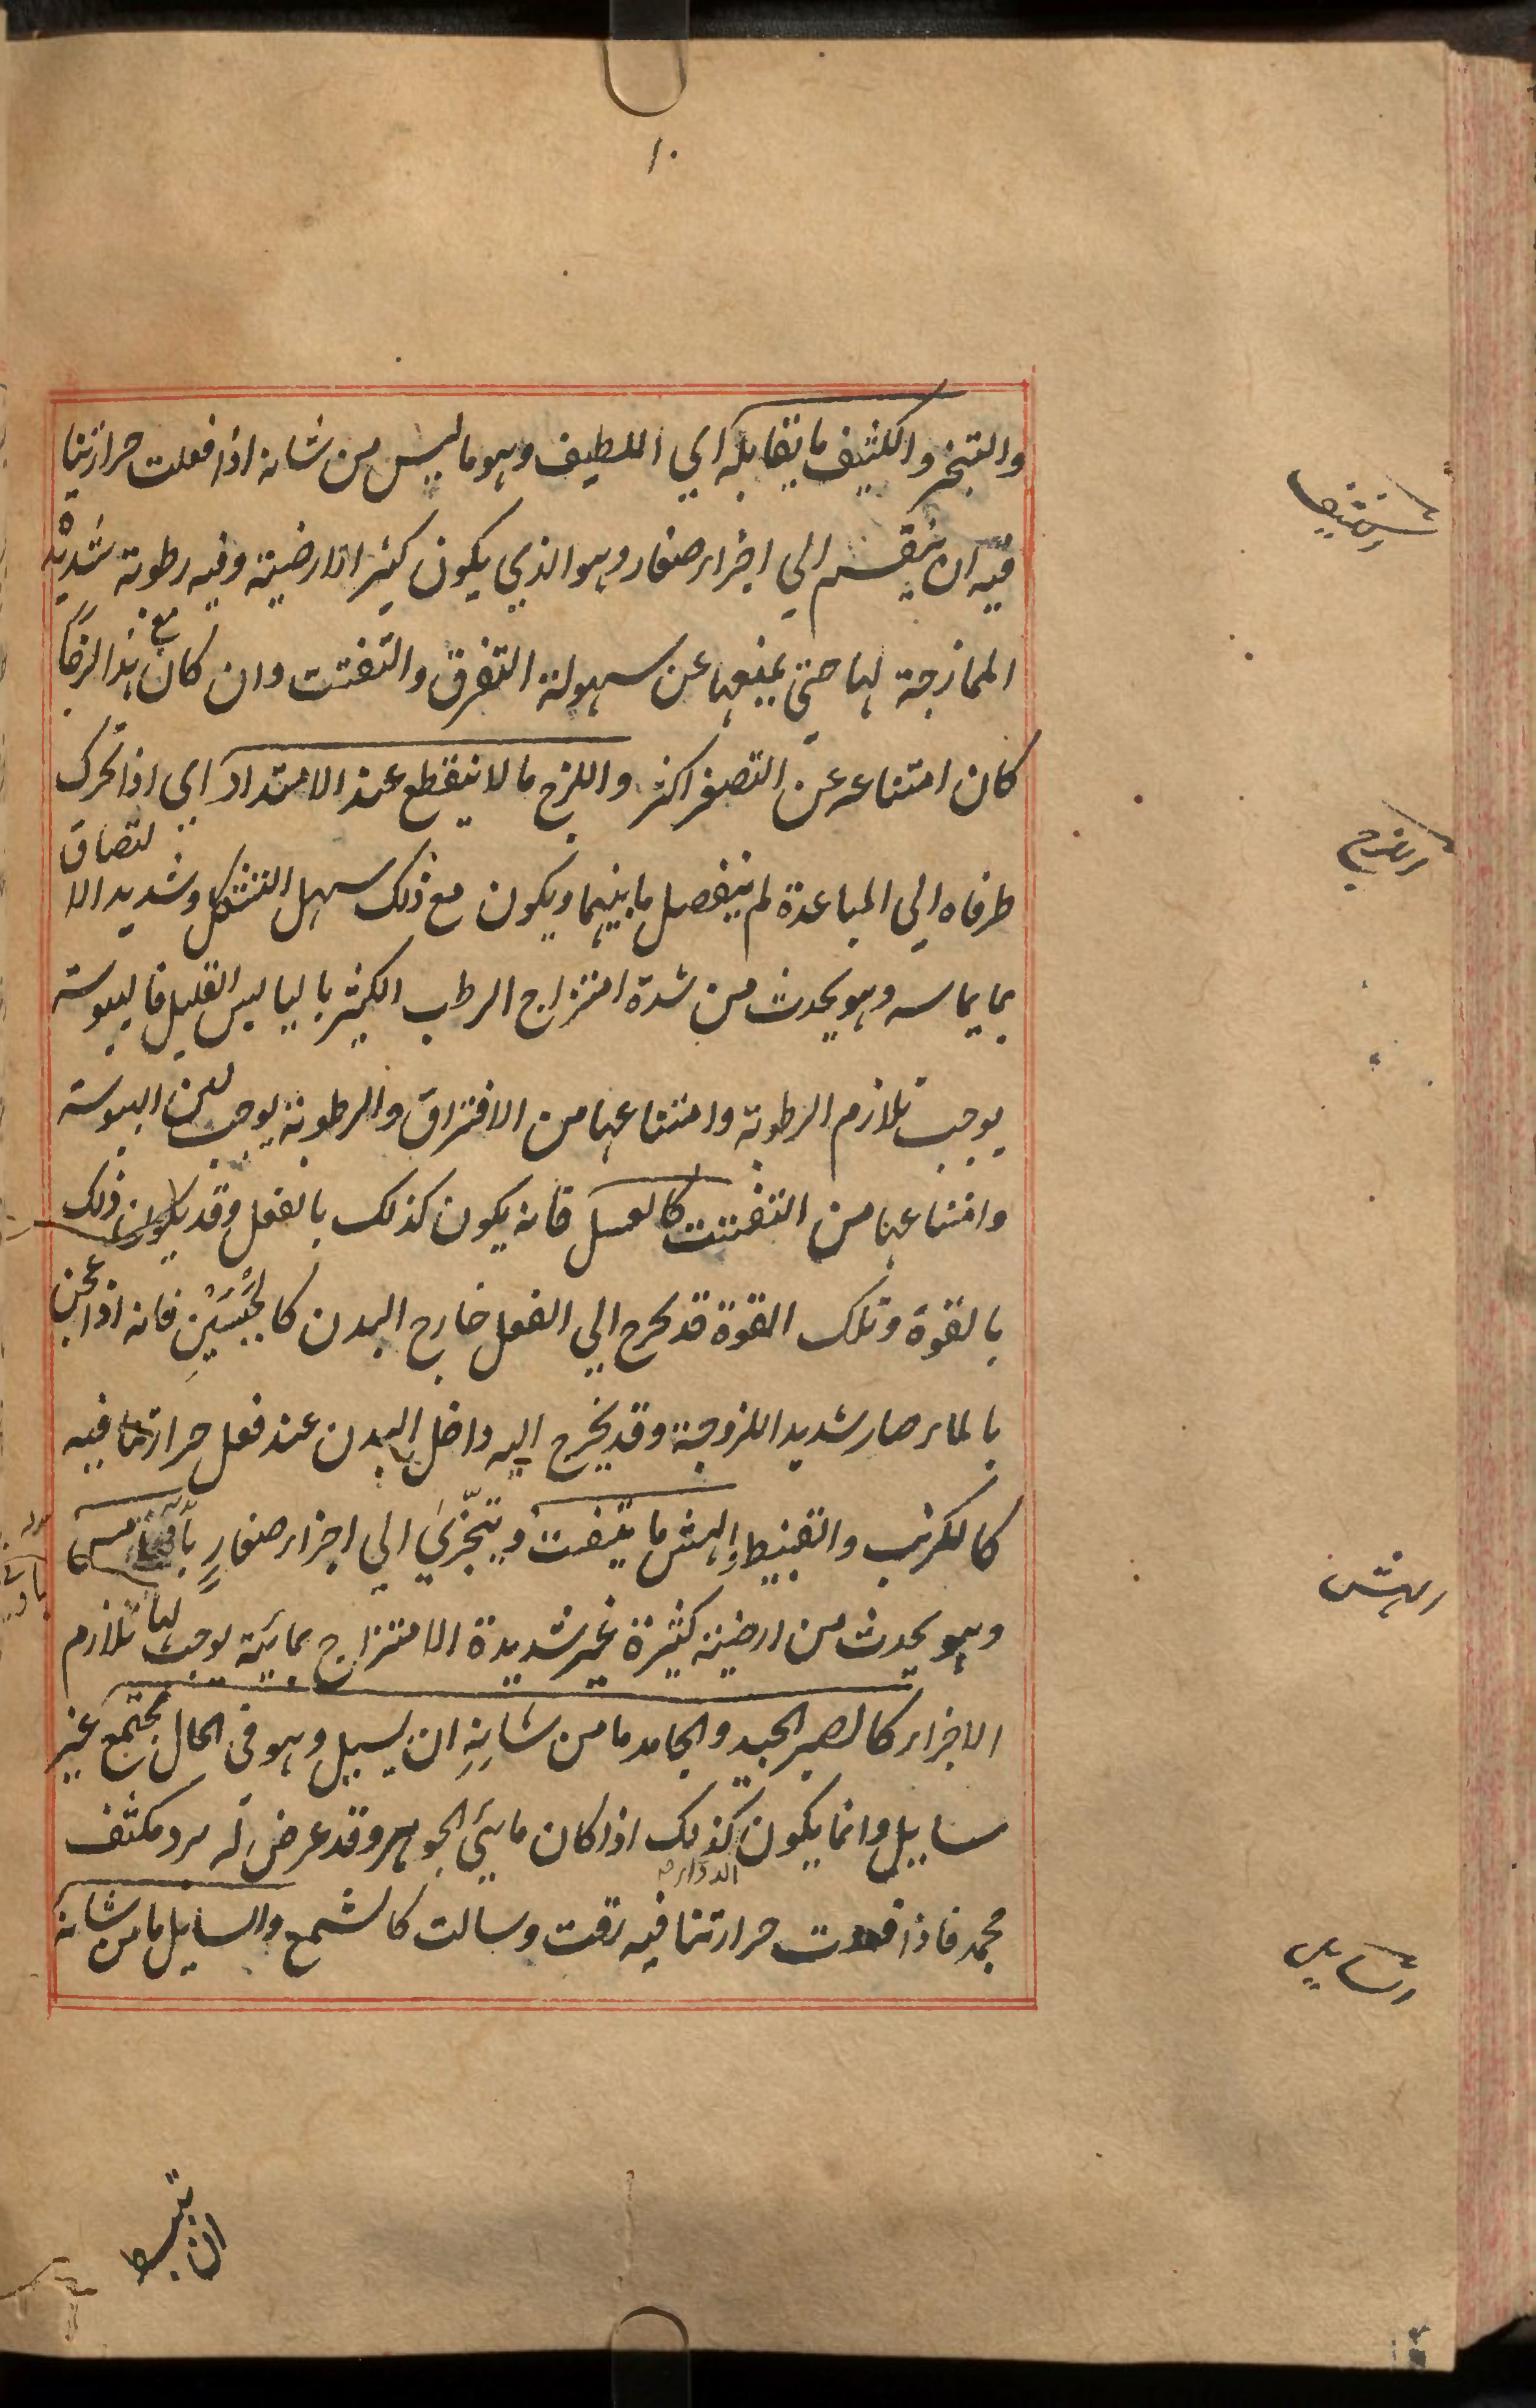 ١٠
والتبخر والكثيف ما يقابله اي اللطيف وهو ما ليس من شانه اذا فعلت حرارتنا
فيه ان ينقسم الي اجزاء صغار وهو الذي يكون كثير الارضية وفيه رطوبة شديدة
الممازجة لها حتي يمنعها عن سهولة التفرق والتفتت وان كان مع هذا لزجا
كان امتناعه عن التصغر اكثر واللزج ما لا ينقطع عند الامتداد اي اذا تحرك
طرفاه الي المباعدة لم ينفصل ما بينهما ويكون مع ذلك سهل التشكل وشديد الالتصاق
بما يماسه وهو يحدث من شدة امتزاج الرطب الكثير باليابس القليل فاليبوسة
يوجب تلازم الرطوبة وامتناعها من الافتراق والرطوبة يوجب لين اليبوسة
وامتناعها من التفتت كالعسل فانه يكون كذلك بالفعل وقد يكون ذلك
بالقوة وتلك القوة قد يخرج الي الفعل خارج البدن كالجبسين فانه اذا عجن
بالماء صار شديد اللزوجة وقد يخرج اليه داخل البدن عند فعل حرارتنا فيه
كالكرنب والقنبيط والهش ما يتفتت ويتجزي الي اجزاء صغار
وهو يحدث من ارضية كثيرة غير شديدة الامتزاج بمائية يوجب لها تلازم
الاجزاء كالصبر الجيد والجامد ما من شانه ان يسيل وهو في الحال مجتمع غير
سايل وانما يكون كذلك اذا كان مايي الجوهر وقد عرض له برد مكثف
مجمد فاذا فعلت حرارتنا فيه رقت وسالت كالشمع والسايل ما من شانه
ان ينبسط
الكثيف
اللزج
الهش
السايل